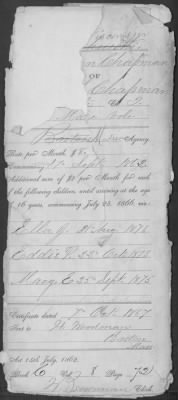 n Chapman
OF
Chapman
Mass Vols
Boston Agency
Rate per Month, $8
Commencing 17 Sept 1862
Additional sum of $2 per Month for each
of the following children, until arriving at the age
of 16 years, commencing July 25, 1866, viz:
Ella J. 21 Aug 1876
Eddie 25 Oct 1873
Mary E. 25 Sept 1875
Certificate dated Oct 1867
Sent to H. Woodman
Boston
Mass
Act 14th July, 1862.
Book C Vol. 8 Page 721
Clerk.